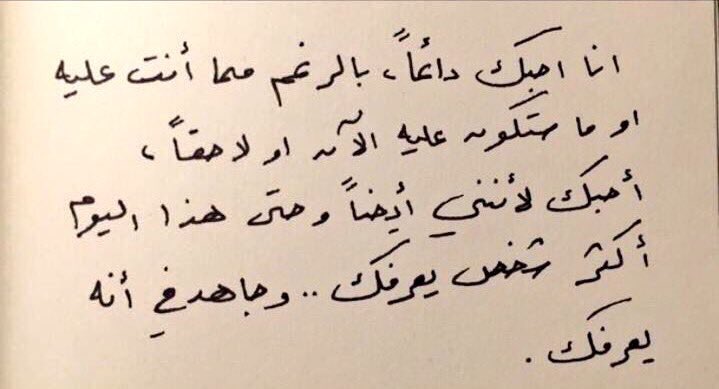 انا احبك دائماً، بالرغم مما أنت عليه
او ما ستكون عليه الآن او لاحقاً،
أحبك لأنني أيضاً وحتى هذا اليوم
أكثر شخص يعرفك .. وجاهد في أنه
يعرفك .